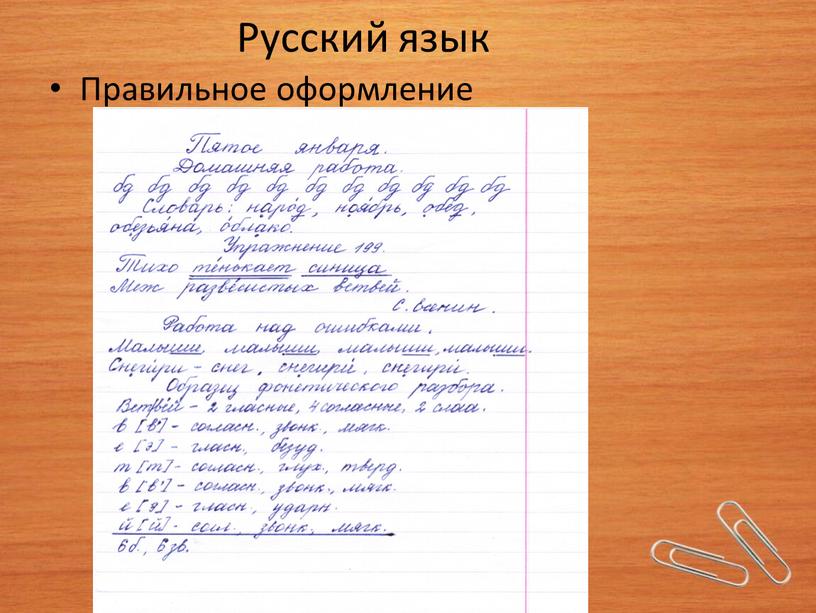 Русский язык
• Правильное оформление
Пятое января.
Домашняя работа.
бд бд бд бд бд бд бд бд бд бд бд
Словарь: наро́д, ноя́брь, обе́д,
обезья́на, о́блако.
Упражнение 199.
Тихо те́нькает синица
Меж разве́систых ветвей.
С. Есенин.
Работа над ошибками.
Малыши, малыши, малыши, малыши.
Снегири – снег, снегири́, снегири́.
Образец фонетического разбора.
Ветвей – 2 гласные, 4 согласные, 2 слога.
в [в'] – согласн., звонк., мягк.
е [э] – гласн., безуд.
т [т] – согласн., глух., тверд.
в [в'] – согласн., звонк., мягк.
е [э] – гласн., ударн.
й [й] – согл., звонк., мягк.
6 б., 6 зв.